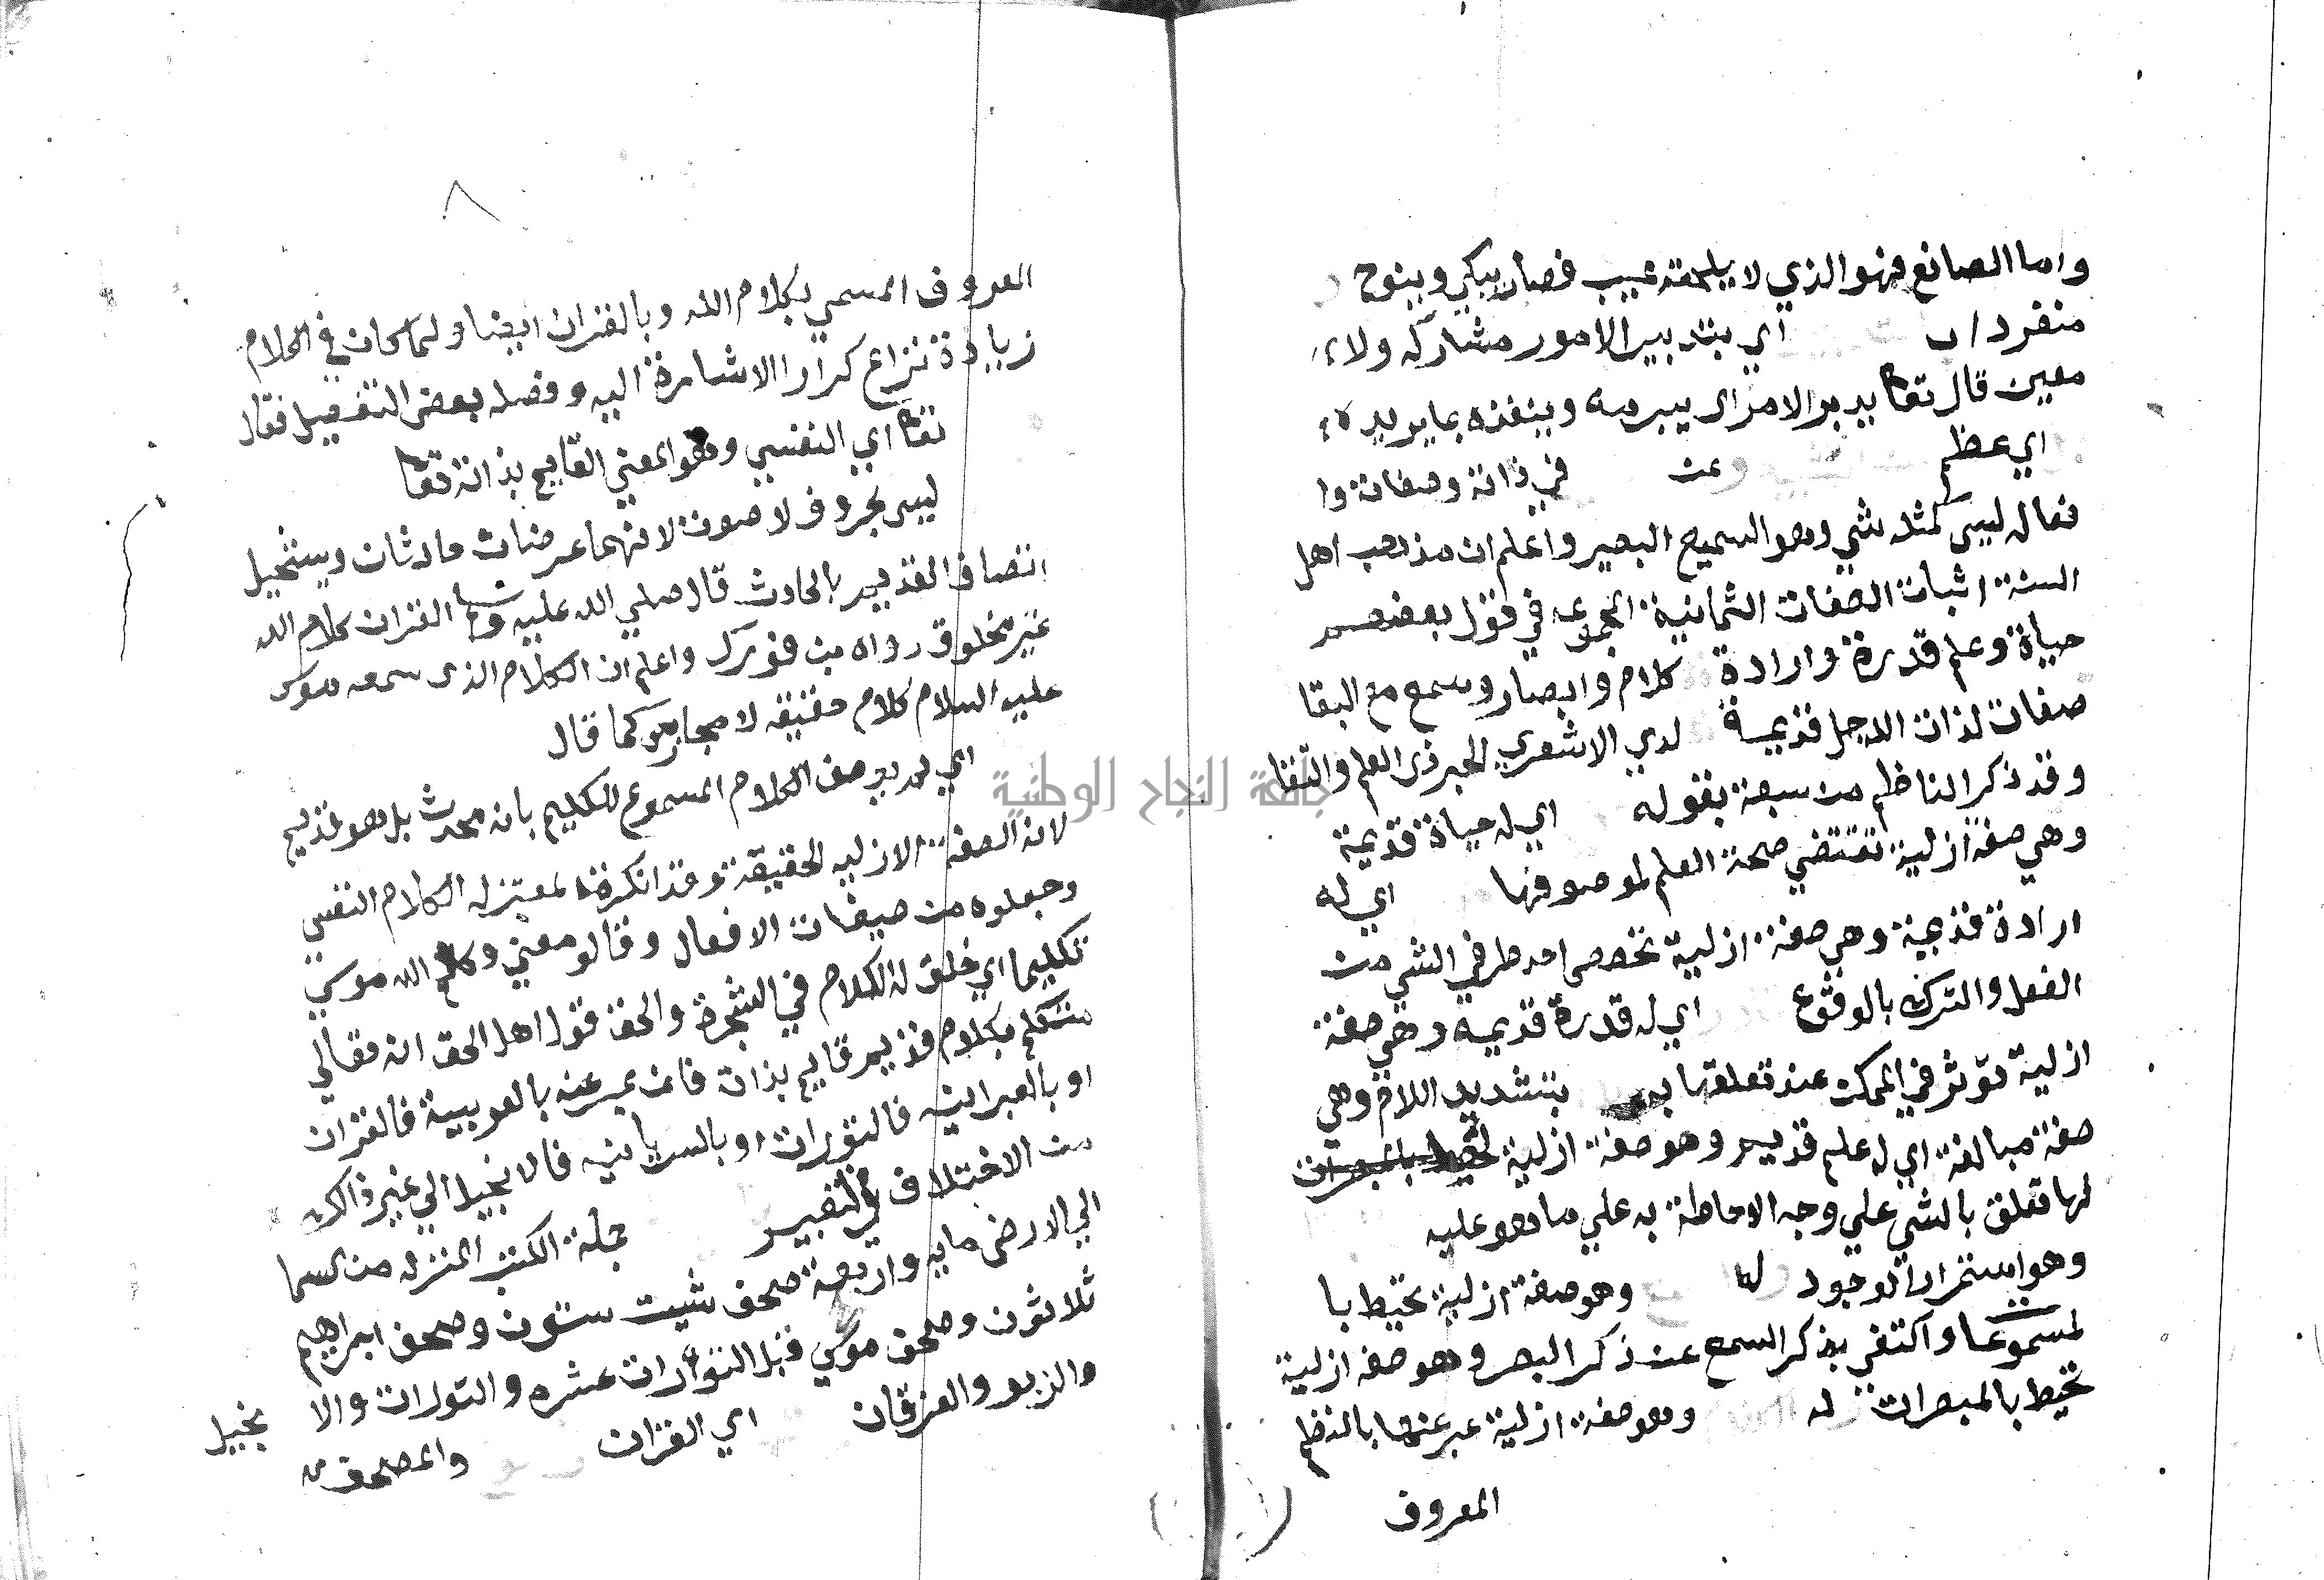 واما الصانع فهو الذي لا يلحقه عيب فصار يبكي وينوح
منفرد اي بتدبير الامور مشاركه ولا
معين قال تعا يدبر الامر اي ييسره وينفذه بما يريد
اي عظم وعن في ذاته وصفاته وا
فعاله ليس كمثله شي وهو السميع البصير واعلم ان مذهب اهل
السنة اثبات الصفات الثمانية المجموعه في قول بعضهم
حياة وعلم قدرة وارادة كلام وابصار وسمع مع البقا
صفات لذات الله جل قديمة لدي الاشعري الحبر ذي العلم والتقا
وقد ذكر الناظم منا سبعة بقوله اي له حياة قديمة
وهي صفة ازلية تقتضي صحة العلم لموصوفها اي له
ارادة قديمة وهي صفة ازلية تخصص احد طرفي الشي من
الفعل والترك بالوقوع اي له قدرة قديمه وهي صفة
ازلية توثر في الممكن عند تعلقها به بتشديد اللام وهي
صفة مبالغة اي له علم قديم وهو صفة ازلية
لها تعلق بالشي علي وجه الاحاطة به علي ما هو عليه
وهو استمرار الوجود له وهو صفة ازلية تحيط با
لمسموعا واكتفي بذكر السمع عن ذكر البصر وهو صفه ازلية
تحيط بالمبصرات له وهو صفة ازلية عبر عنها بالنظم
المعروف
٨
المعروف المسمي بكلام الله وبالقران ايضا ولما كان في الكلام
زيادة نزاع كرارا الاشارة اليه وفصله بعض التفصيل فقال
تعا اي النفسي وهو المعني القايم بذاته تعا
ليس بحروف لا صوت لانهما عرضات حادثات ويستحيل
اتصاف القديم بالحادث قال صلي الله عليه وسلم القران كلام الله
غير مخلوق رواه بن فورك واعلم ان الكلام الذي سمعه موسى
عليه السلام كلام حقيقه لا مجاز هو كما قال
اي لم يوصف الكلام المسموع للكليم بانه محدث بل هو قديم
لانه الصفة الازليه الحقيقة وقد انكرة المعتزله الكلام النفسي
وجعلوه من صيفات الافعال وقالو معني وكلم الله موسي
تكليما اي خلق له الكلام في الشجرة والحق قول اهل الحق انه تعالي
متكلم بكلام قديم قايم بذات فان عبر عنه بالعربية فالقران
او بالعبرانيه فالتورات او بالسريانيه فالانجيل الي غير ذالك
من الاختلاف في التعبير جملة الكتب المنزله من السما
الي الارض مايه واربعة صحف شيت ستون وصحف ابراهيم
ثلاثون وصحف موسي قبل التوارات عشره والتورات والا نجيل
والزبور والفرقان اي القران والمصحف
جامعة النجاح الوطنية